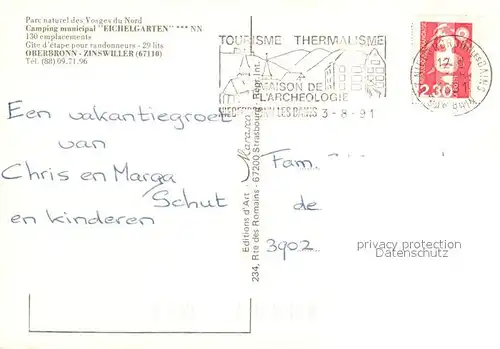 Parc naturel des Vosges du Nord
Camping municipal "EICHELGARTEN" *** NN
130 emplacements
Gîte d'étape pour randonneurs - 29 lits
OBERBRONN - ZINSWILLER (67110)
Tél. (88) 09.71.96
TOURISME THERMALISME
MAISON DE
L'ARCHEOLOGIE
NIEDERBRONN LES BAINS 3-8-91
2,30
Een vakantiegroet
van
Chris en Marga
Schut
en kinderen
Editions d'Art
234, Rte des Romains - 67200 Strasbourg
Fam.
de
3902
privacy protection
Datenschutz